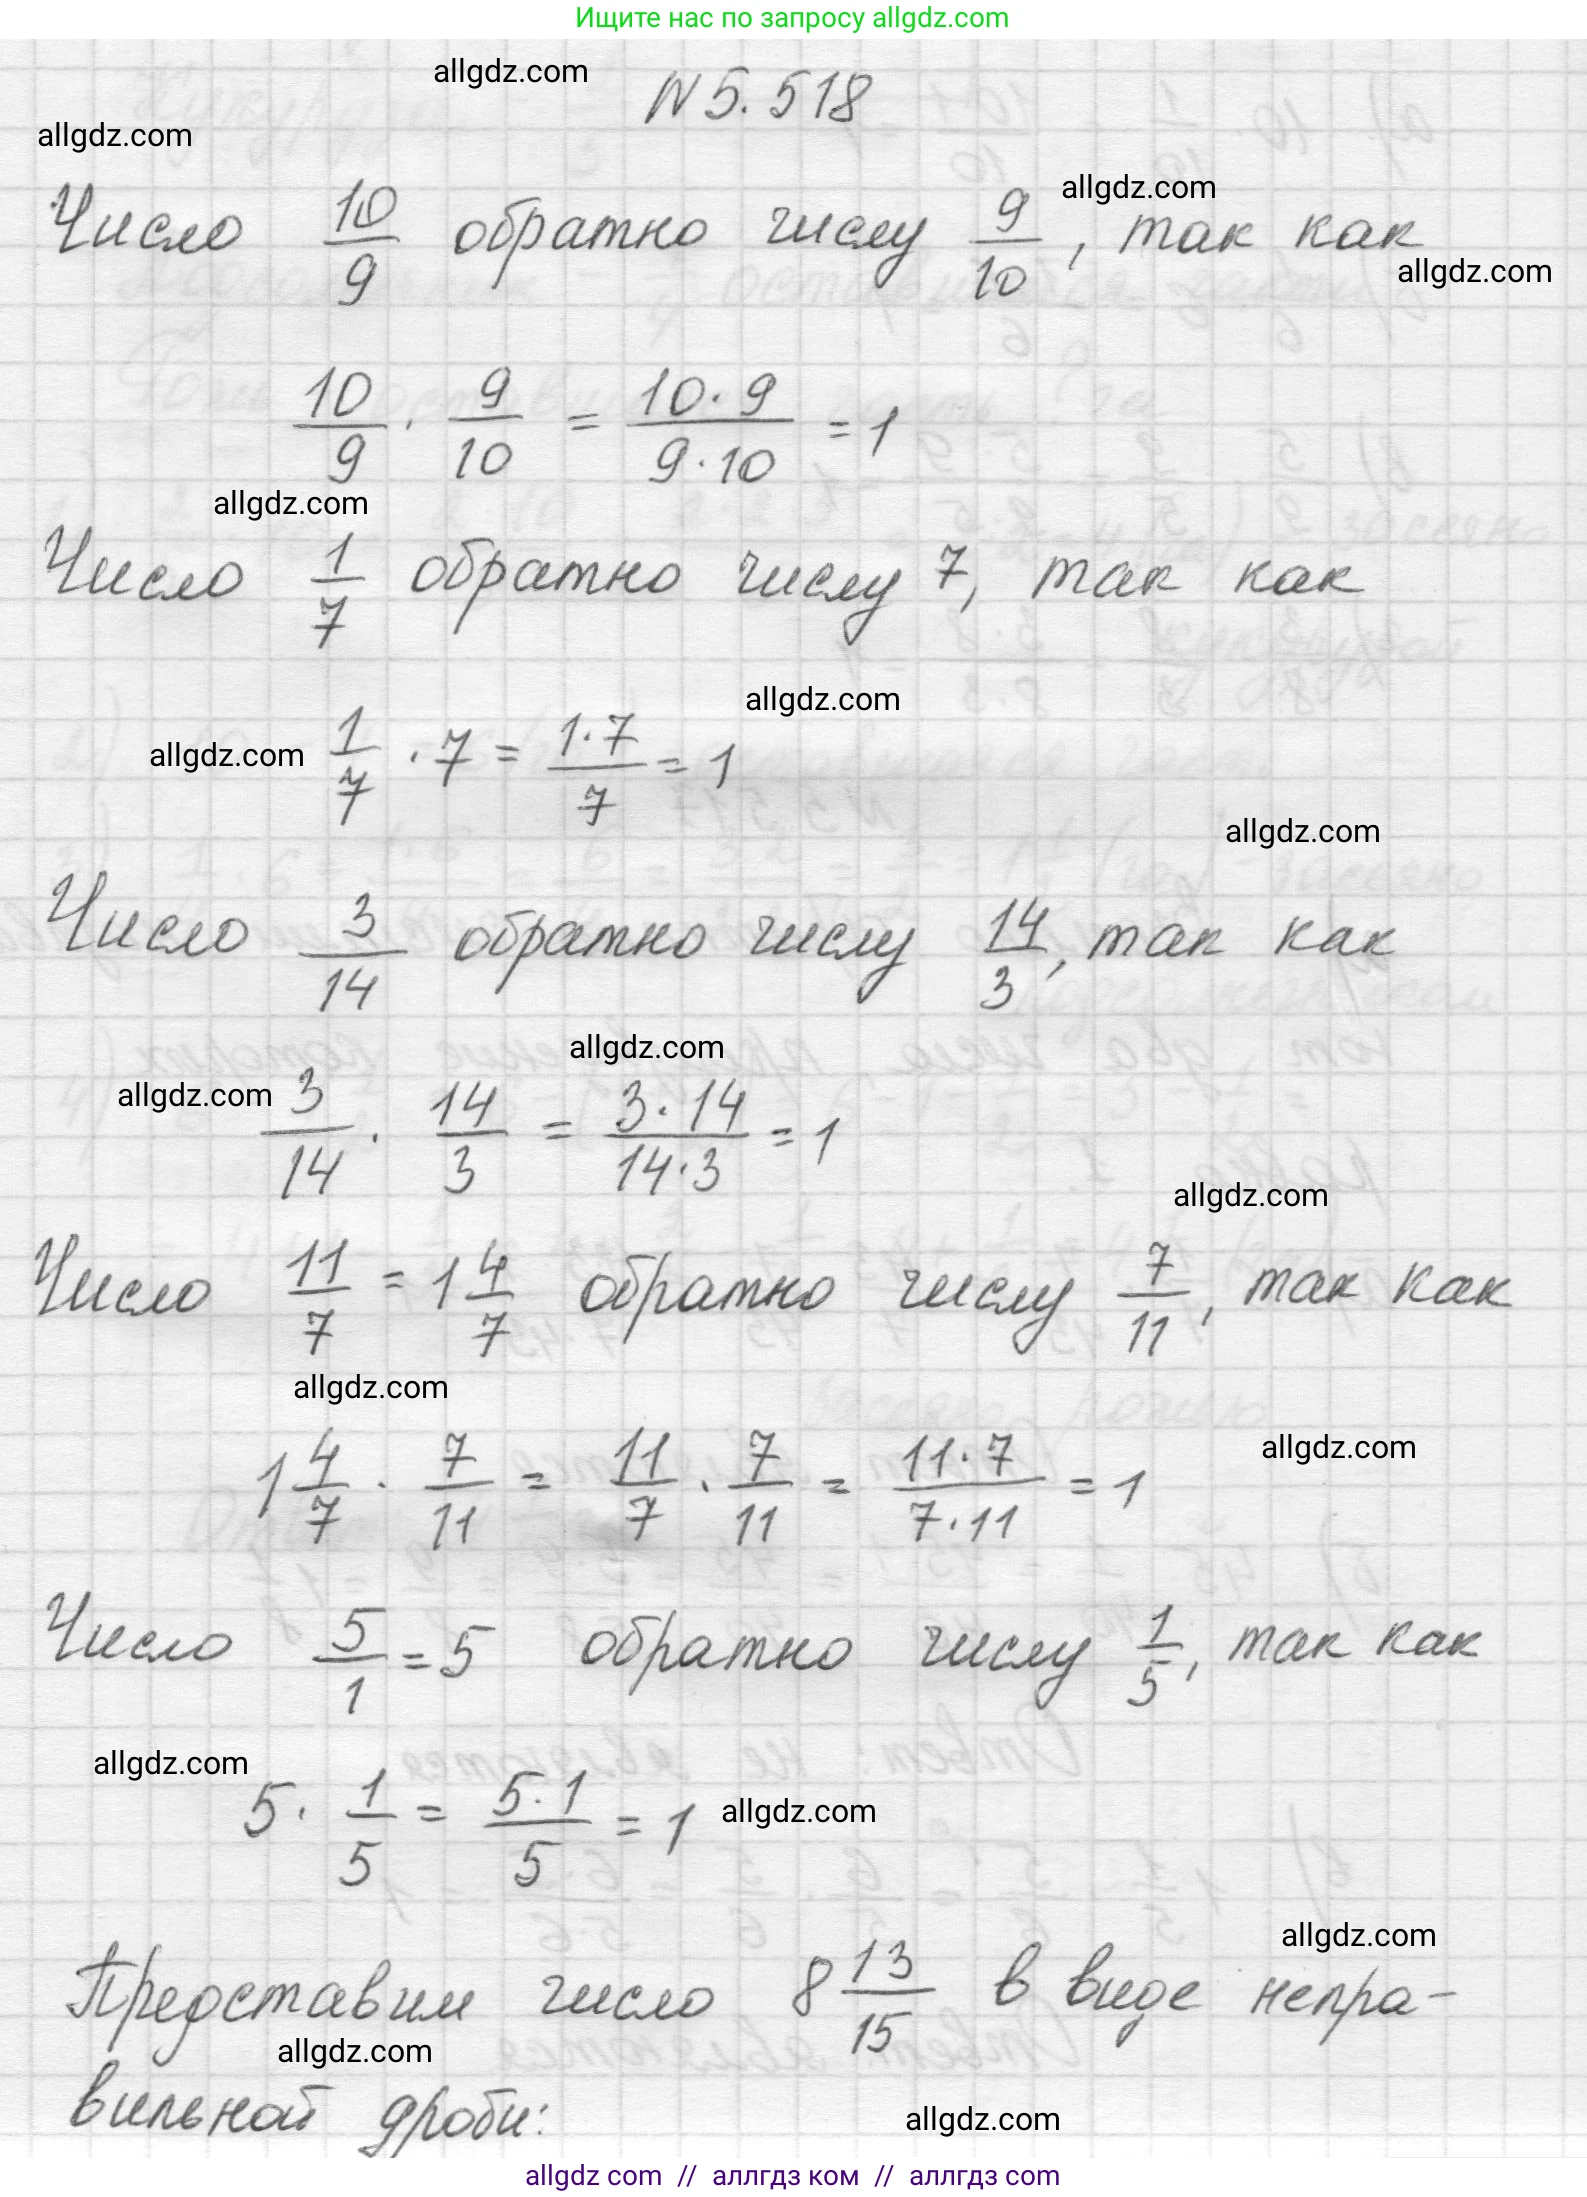 Ищите нас по запросу allgdz.com
allgdz.com
N 5.518
allgdz.com
allgdz.com
Число 10/9 обратно числу 9/10, так как
allgdz.com
10/9 · 9/10 = 10·9/9·10 = 1
allgdz.com
Число 1/7 обратно числу 7, так как
allgdz.com
allgdz.com 1/7 · 7 = 1·7/7 = 1
allgdz.com
Число 3/14 обратно числу 14/3, так как
allgdz.com
allgdz.com 3/14 · 14/3 = 3·14/14·3 = 1
allgdz.com
Число 11/7 = 1 4/7 обратно числу 7/11, так как
allgdz.com
allgdz.com
1 4/7 · 7/11 = 11/7 · 7/11 = 11·7/7·11 = 1
Число 5/1 = 5 обратно числу 1/5, так как
allgdz.com
5 · 1/5 = 5·1/5 = 1 allgdz.com
allgdz.com
Представим число 8 13/15 в виде непра-
allgdz.com
вильной дроби:
allgdz.com
allgdz com // аллгдз ком // аллгдз com